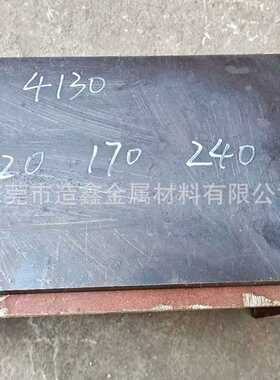 4130
20 170 240
莞市造鑫金属材料有限公司